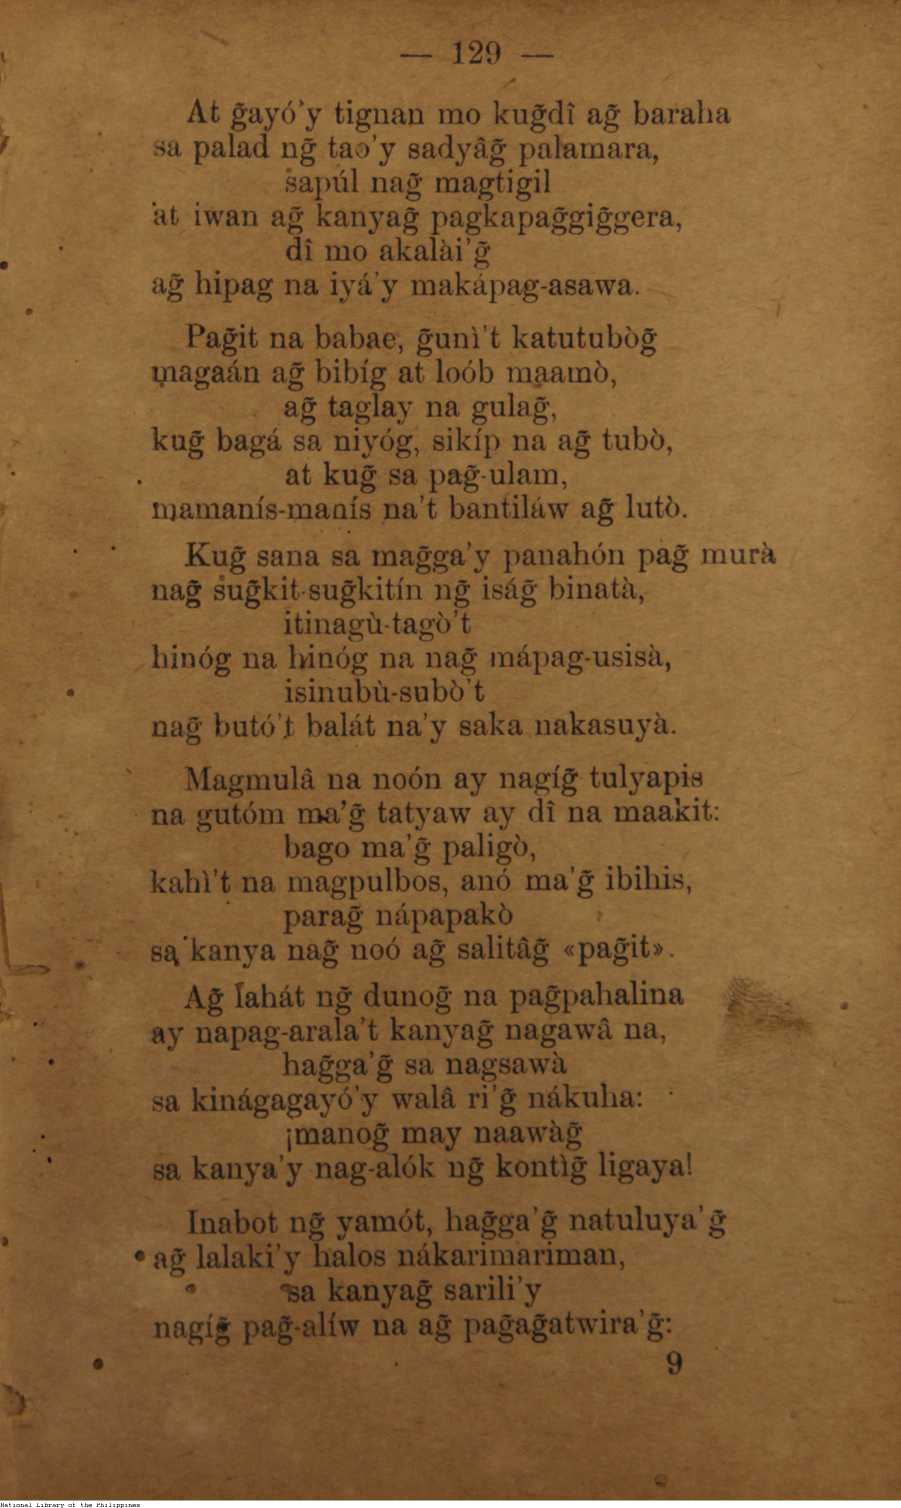 — 129 —
At g̃ayó'y tignan mo kug̃dî ag̃ baraha
sa palad ng̃ tao'y sadyâg̃ palamara,
sapúl nag̃ magtigil
at iwan ag̃ kanyag̃ pagkapag̃gig̃gera,
dî mo akalài'g̃
ag̃ hipag na iyá'y makápag-asawa.
Pag̃it na babae, g̃unì't katutubòg̃
magaán ag̃ bibíg at loób maamò,
ag̃ taglay na gulag̃,
kug̃ bagá sa niyóg, sikíp na ag̃ tubò,
at kug̃ sa pag̃-ulam,
mamanís-manís na't bantiláw ag̃ lutò.
Kug̃ sana sa mag̃ga'y panahón pag̃ murà
nag̃ sug̃kit-sug̃kitín ng̃ iság̃ binatà,
itinagù-tagò't
hinóg na hinóg na nag̃ mápag-usisà,
isinubù-subò't
nag̃ butó't balát na'y saka nakasuyà.
Magmulâ na noón ay nagíg̃ tulyapis
na gutóm ma'g̃ tatyaw ay dî na maakit:
bago ma'g̃ paligò,
kahì't na magpulbos, anó ma'g̃ ibihis,
parag̃ nápapakò
sa kanya nag̃ noó ag̃ salitâg̃ «pag̃it».
Ag̃ lahát ng̃ dunog̃ na pag̃pahalina
ay napag-arala't kanyag̃ nagawâ na,
hag̃ga'g̃ sa nagsawà
sa kinágagayó'y walâ ri'g̃ nákuha:
¡manog̃ may naawàg̃
sa kanya'y nag-alók ng̃ kontìg̃ ligaya!
Inabot ng̃ yamót, hag̃ga'g̃ natuluya'g̃
ag̃ lalaki'y halos nákarimariman,
sa kanyag̃ sarili'y
nagíg̃ pag̃-alíw na ag̃ pag̃ag̃atwira'g̃:
9
National Library of the Philippines